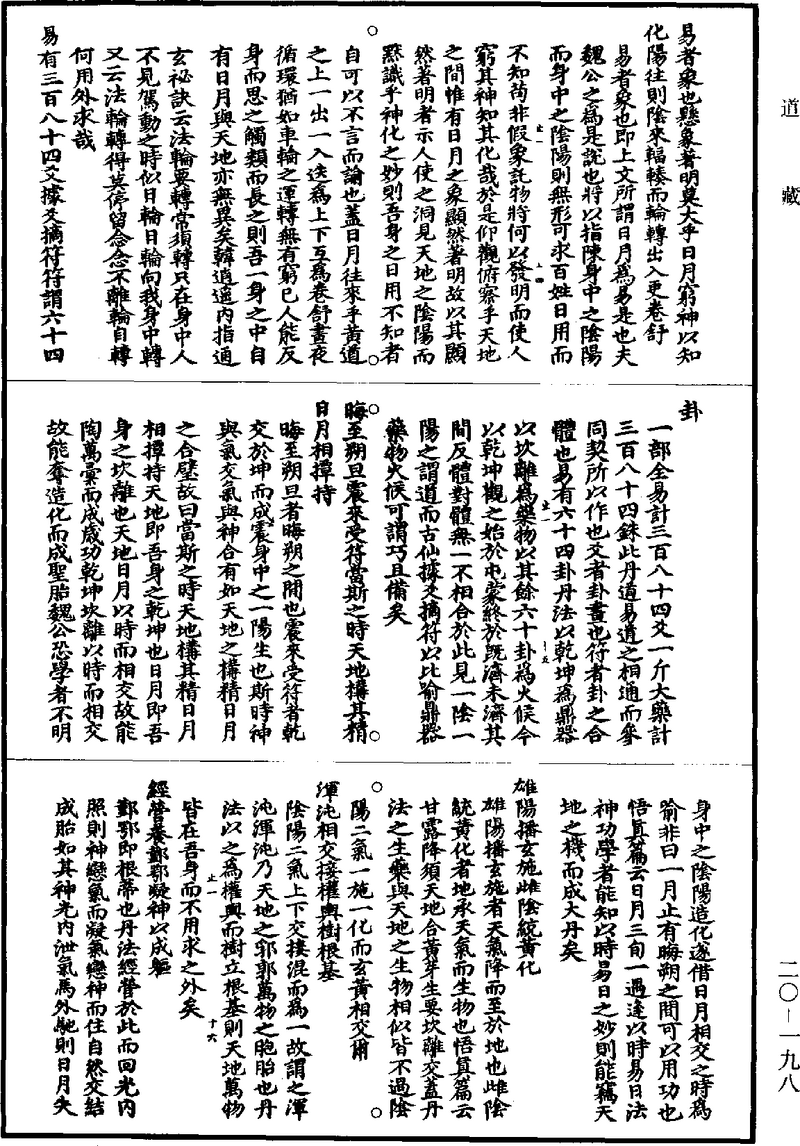 道藏
易者象也懸象著明莫大乎日月窮神以知
化陽往則陰來輻輳而輪轉出入更卷舒
易者象也即上文所謂日月為易是也夫
魏公之為是說也將以指陳身中之陰陽
而身中之陰陽則無形可求百姓日用而
不知苟非假象託物將何以發明而使人
窮其神知其化哉於是仰觀俯察乎天地
之間惟有日月之象顯然著明故以其顯
然著明者示人使之洞見天地之陰陽而
黙識乎神化之妙則吾身之日用不知者
自可以不言而諭也蓋日月往來乎黃道
之上一出一入迭為上下互為卷舒晝夜
循環猶如車輪之運轉無有窮已人能反
身而思之觸類而長之則吾一身之中自
有日月與天地亦無異矣韓逍遙內指通
玄祕訣云法輪要轉常須轉只在身中人
不見駕動之時似日輪日輪向我身中轉
又云法輪轉得莫停留念念不離輪自轉
何用外求哉
易有三百八十四爻據爻摘符符謂六十四
卦
一部全易計三百八十四爻一斤大藥計
三百八十四銖此丹道易道之相通而參
同契所以作也爻者卦畫也符者卦之合
體也易有六十四卦丹法以乾坤為鼎器
以坎離為藥物以其餘六十卦為火候今
以乾坤觀之始於屯蒙終於既濟未濟其
間反體對體無一不相合於此見一陰一
陽之謂道而古仙據爻摘符以比喻鼎器
藥物火候可謂巧且備矣
晦至朔旦震來受符當斯之時天地構其精
日月相撢持
晦至朔旦者晦朔之間也震來受符者乾
交於坤而成震身中之一陽生也斯時神
與氣交氣與神合有如天地之構精日月
之合璧故曰當斯之時天地構其精日月
相撢持天地即吾身之乾坤也日月即吾
身之坎離也天地日月以時而相交故能
陶萬彙而成歲功乾坤坎離以時而相交
故能奪造化而成聖胎魏公恐學者不明
身中之陰陽造化遂借日月相交之時為
喻非曰一月止有晦朔之間可以用功也
悟真篇云日月三旬一遇逢以時易日法
神功學者能知以時易日之妙則能竊天
地之機而成大丹矣
雄陽播玄施雌陰統黃化
雄陽播玄施者天氣降而至於地也雌陰
統黃化者地承天氣而生物也悟真篇云
甘露降須天地合黃芽生要坎離交蓋丹
法之生藥與天地之生物相似皆不過陰
陽二氣一施一化而玄黃相交爾
渾沌相交接權輿樹根基
陰陽二氣上下交接混而為一故謂之渾
沌渾沌乃天地之郛郭萬物之胞胎也丹
法以之為權輿而樹立根基則天地萬物
皆在吾身而不用求之外矣
經營養鄞鄂凝神以成軀
鄞鄂即根蒂也丹法經營於此而回光內
照則神戀氣而凝氣戀神而住自然交結
成胎如其神光內泄氣馬外馳則日月失
二〇一一九八